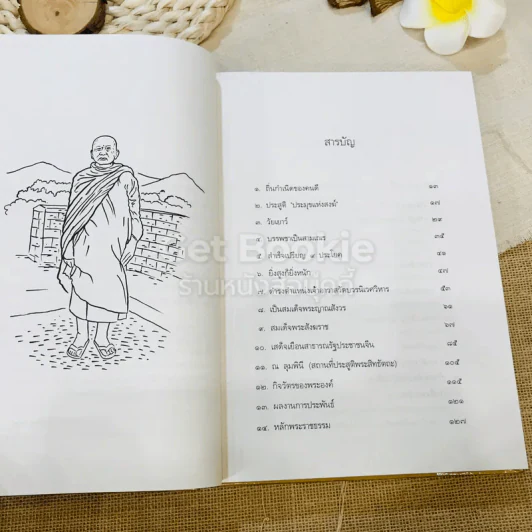 สารบัญ
๑. ถิ่นกำเนิดของคนดี ๑๓
๒. ประสูติ "ประมุขแห่งสงฆ์" ๑๗
๓. วัยเยาว์ ๒๙
๔. บรรพชาเป็นสามเณร ๓๕
๕. สำเร็จเปรียญ ๙ ประโยค ๔๑
๖. ยิ่งสูงก็ยิ่งหนัก ๔๗
๗. ดำรงตำแหน่งเจ้าอาวาสวัดบวรนิเวศวิหาร ๕๓
๘. เป็นสมเด็จพระญาณสังวร ๖๑
๙. สมเด็จพระสังฆราช ๖๗
๑๐. เสด็จเยือนสาธารณรัฐประชาชนจีน ๘๕
๑๑. ณ ลุมพินี (สถานที่ประสูติพระสิทธัตถะ) ๑๐๕
๑๒. กิจวัตรของพระองค์ ๑๑๕
๑๓. ผลงานการประพันธ์ ๑๒๑
๑๔. หลักพระราชธรรม ๑๒๗
Get Bookie